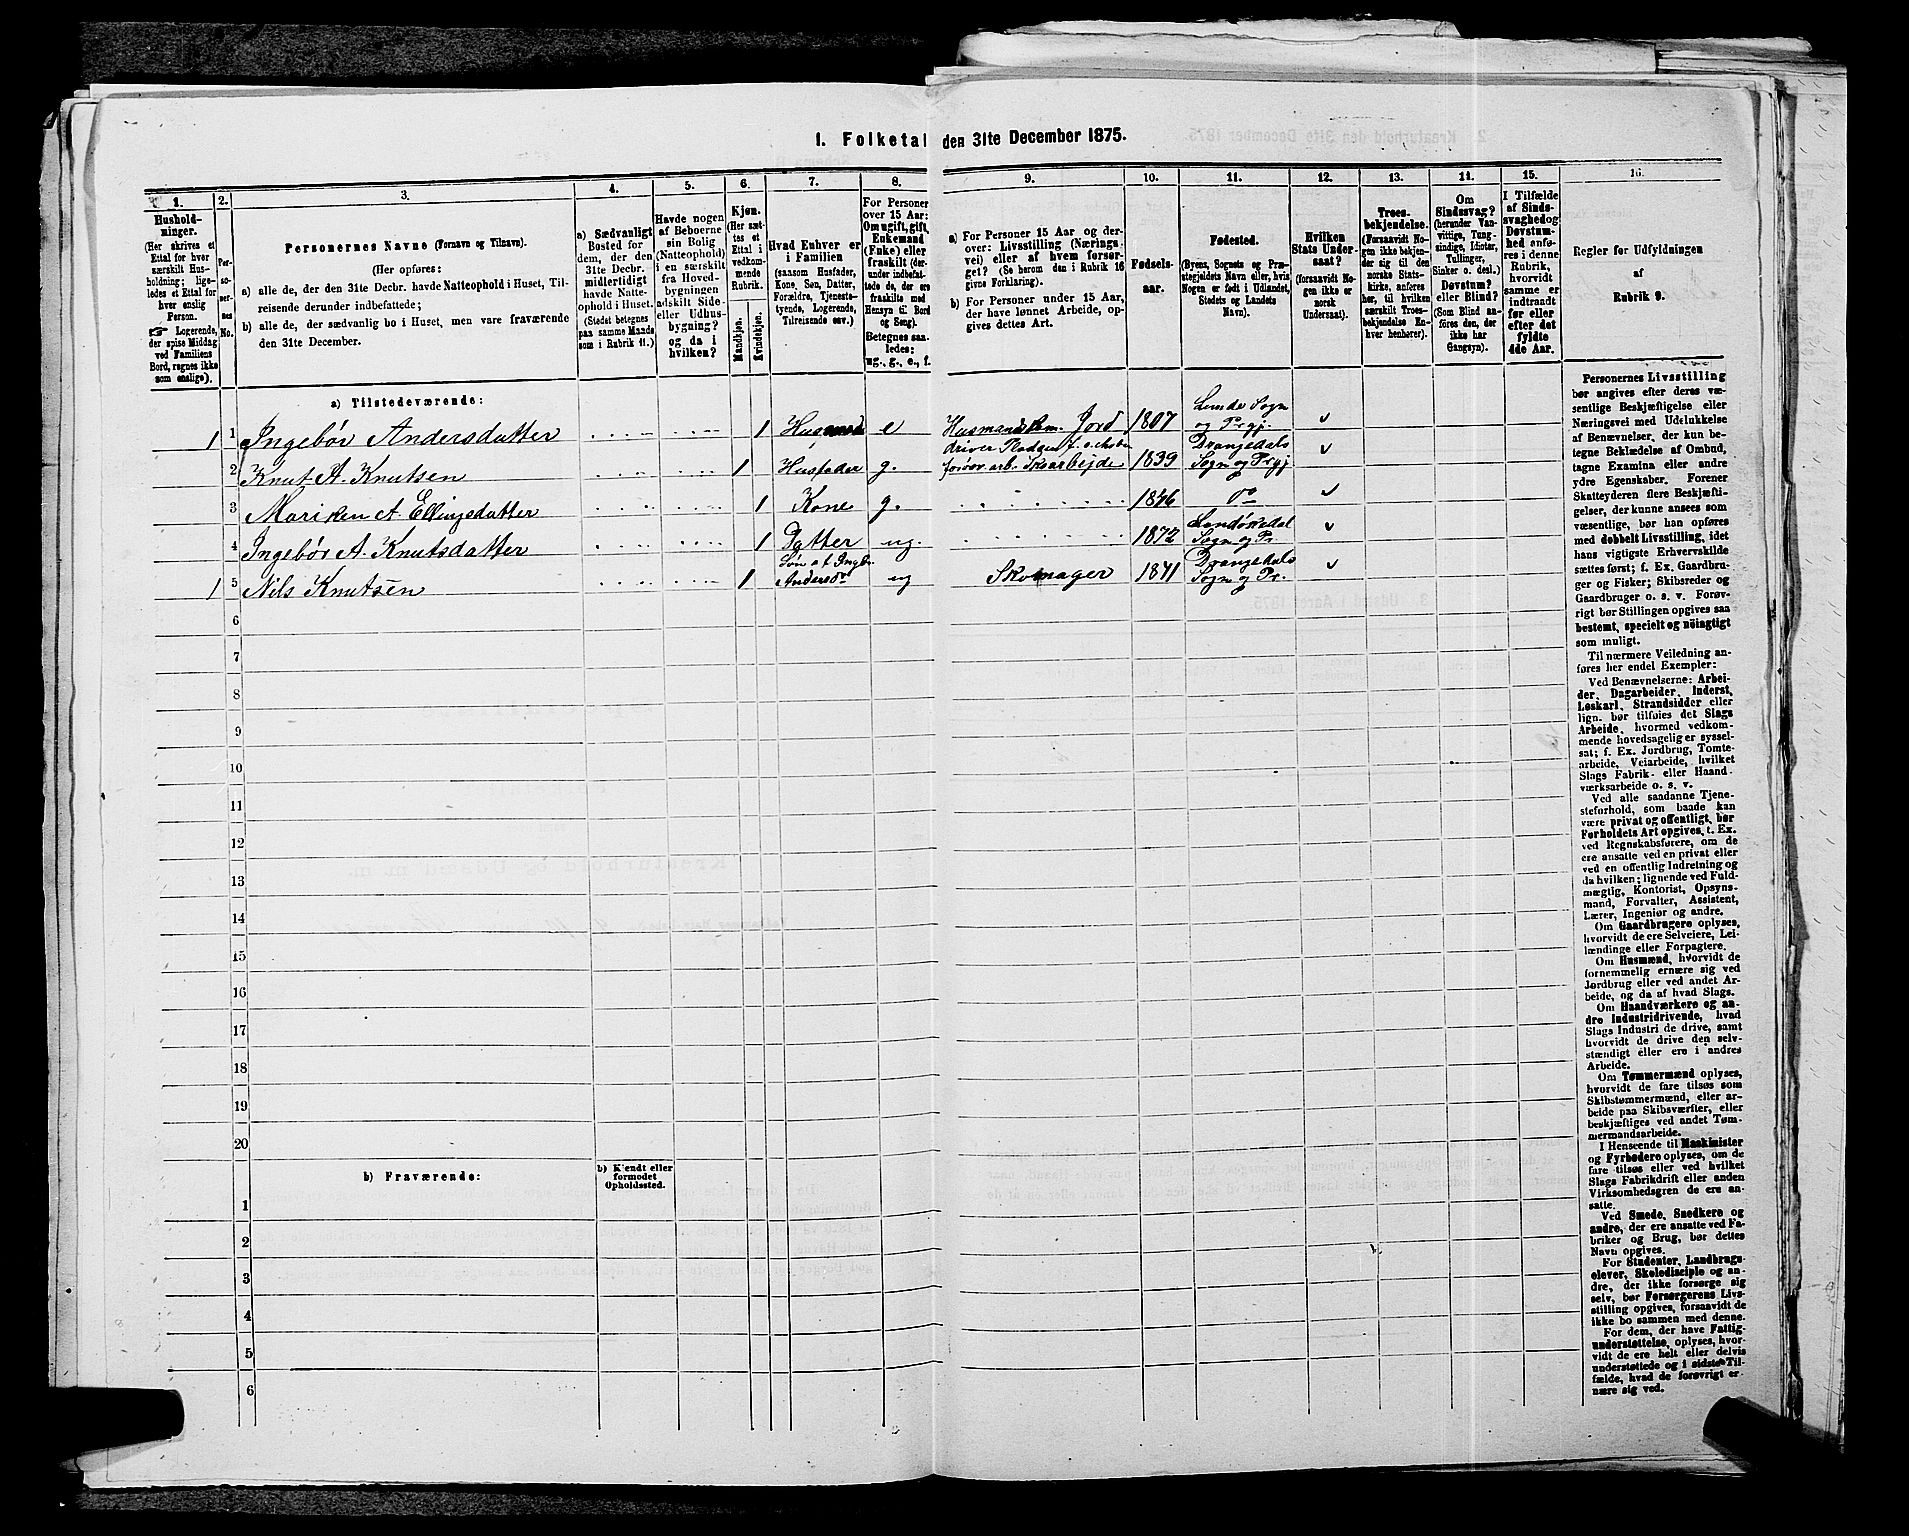 1. Folketal den 31te December 1875.
1.
2.
3.
4.
5.
6.
7.
8.
9.
10.
11.
12.
13.
14.
15.
16.
Hushold-
ninger.
(Her skrives et
Ettal for hver
særskilt Hus-
holdning; lige-
ledes et Ettal for
hver enslig
Person.
☞ Logerende,
der spise Middag
ved Familiens
Bord, regnes ikke
som enslige).
Per-
so-
ner-
nes
No.
Personernes Navne (Fornavn og Tilnavn).
(Her opføres:
a) alle de, der den 31te Decbr. havde Natteophold i Huset, Til-
reisende derunder indbefattede;
b) alle de, der sædvanlig bo i Huset, men vare fraværende
den 31te December.
a) Sædvanligt
Bosted for
dem, der den
31te Decbr.
midlertidigt
havde Natte-
ophold i Huset.
(Stedet betegnes
paa samme Maade
som i Rubrik 11.)
Havde nogen
af Beboerne
sin Bolig
(Natteophold)
i en særskilt
fra Hoved-
bygningen
adskilt Side-
eller Udhus-
bygning?
og da i
hvilken?
Kjøn.
(Her sæt-
tes et
Ettal i
vedkom-
mende
Rubrik.
Mandkjøn.
Kvindekjøn.
Hvad Enhver er
i Familien
(saasom Husfader,
Kone, Søn, Datter,
Forældre, Tjeneste-
tyende, Logerende,
Tilreisende osv.)
For Personer
over 15 Aar:
Om ugift, gift,
Enkemand
(Enke) eller
fraskilt (der-
under indbefat-
tede de, der ere
fraskilte med
Hensyn til Bord
og Seng).
Betegnes saa-
ledes:
ug., g., e., f.
a) For Personer 15 Aar og der-
over: Livsstilling (Nærings-
vei) eller af hvem forsør-
get? (Se herom den i Rubrik 16
givne Forklaring).
b) For Personer under 15 Aar,
der have lønnet Arbeide, op-
gives dettes Art.
Fødsels-
aar.
Fødested.
(Byens, Sognets og Præ-
stegjeldets Navn eller, hvis
Nogen er født i Udlandet,
Stedets og Landets
Navn).
Hvilken
Stats Under-
saat?
(forsaavidt No-
gen ikke er
norsk
Undersaat).
Troes-
bekjendelse.
(Forsaavidt No-
gen ikke bekjen-
der sig til den
norske Stats-
kirke, anføres
her, til hvilken
særskilt Troes-
bekjendelse En-
hver henhører).
Om
Sindssvag?
(herunder Van-
vittige, Tung-
sindige, Idioter,
Tullinger,
Sinker o. desl.)
Døvstum?
eller Blind?
(Som Blind an-
føres den, der
ikke har
Gangsyn).
I Tilfælde
af Sinds-
svaghed og
Døvstum-
hed anfø-
res i denne
Rubrik,
hvorvidt
samme er
indtraadt
før eller
efter det
fyldte
4de Aar.
Regler for Udfyldningen
af
Rubrik 9.
a) Tilstedeværende:
1 1 Ingebør Andersdatter 1 e Husmandskem. Jord 1807 Lunde Sogn og Prgj. ✓
2 Knut A. Knutsen 1 Husfader g. driver Pladsen forøv. arb. Skoarbejde 1839 Drangedals Sogn og Prgj ✓
3 Mariken A. Ellingsdatter 1 Kone g. 1846 Do ✓
4 Ingebør A. Knutsdatter 1 Datter ug. 1872 Sandøkedal Sogn og Pr. ✓
1 5 Nils Knutsen 1 Søn af Ingbr. Andersdr ug Skomager 1841 Drangedals Sogn og Pr. ✓
6
7
8
9
10
11
12
13
14
15
16
17
18
19
20
b) Fraværende:
b) Kjendt eller
formodet
Opholdssted.
1
2
3
4
5
6
Personernes Livsstilling
bør angives efter deres væ-
sentlige Beskjæftigelse eller
Næringsvei med Udelukkelse
af Benævnelser, der kun be-
tegne Beklædelse af Ombud,
tagne Examina eller andre
ydre Egenskaber. Forener
Skatteyderen flere Beskjæfti-
gelser, der kunne ansees som
væsentlige, bør han opføres
med dobbelt Livsstilling, idet
hans vigtigste Erhvervskilde
sættes først; f. Ex. Gaardbru-
ger og Fisker; Skibsreder og
Gaardbruger o. s. v. Forøv-
rigt bør Stillingen opgives saa
bestemt, specielt og nöiagtigt
som muligt.
Til nærmere Veiledning an-
føres her endel Exempler:
Ved Benævnelserne: Arbei-
der, Dagarbeider, Inderst,
Løskarl, Strandsidder eller
lign. bør tilføies det Slags
Arbeide, hvormed vedkom-
mende hovedsagelig er syssel-
sat; f. Ex. Jordbrug, Tomte-
arbeide, Veiarbeide, hvilket
Slags Fabrik- eller Haand-
værksarbeide o. s. v.
Ved alle saadanne Tjene-
steforhold, som baade kan
være privat og offentligt, bør
Forholdets Art opgives, t. Ex.
ved Regnskabsførere, om de
ere ansatte ved en privat eller
ved en offentlig Indretning og
da hvilken; lignende ved Fuld-
mægtig, Kontorist, Opsyns-
mand, Forvalter, Assistent,
Lærer, Ingeniør og andre.
Om Gaardbrugere oplyses,
hvorvidt de ere Selveiere, Lei-
lændinge eller Forpagtere.
Om Husmænd, hvorvidt de
fornemmelig ernære sig ved
Jordbrug eller ved andet Ar-
beide, og da af hvad Slags.
Om Haandværkere og an-
dre Industridrivende, hvad
Slags Industri de drive, samt
hvorvidt de drive den selv-
stændigt eller ere i andres
Arbeide.
Om Tømmermænd oplyses,
hvorvidt de fare tilsøs som
Skibstømmermænd, eller ar-
beide paa Skibsværfter, eller
beskjæftiges ved andet Tøm-
mermandsarbeide.
I Henseende til Maskinister
og Fyrbødere oplyses, om de
fare tilsøs eller ved hvilket
Slags Fabrikdrift eller anden
Virksomhedsgren de ere an-
satte.
Ved Smede, Snedkere og
andre, der ere ansatte ved Fa-
briker og Brug, bør dettes
Navn opgives.
For Studenter, Landbrugs-
elever, Skoledisciple og an-
dre, der ikke forsørge sig
selv, bør Forsørgerens Livs-
stilling opgives, forsaavidt de
ikke bo sammen med denne.
For dem, der have Fattig-
understøttelse, oplyses, hvor-
vidt de ere helt eller delvis
understøttede og i sidste Til-
fælde, hvad de forøvrigt er-
nære sig ved.